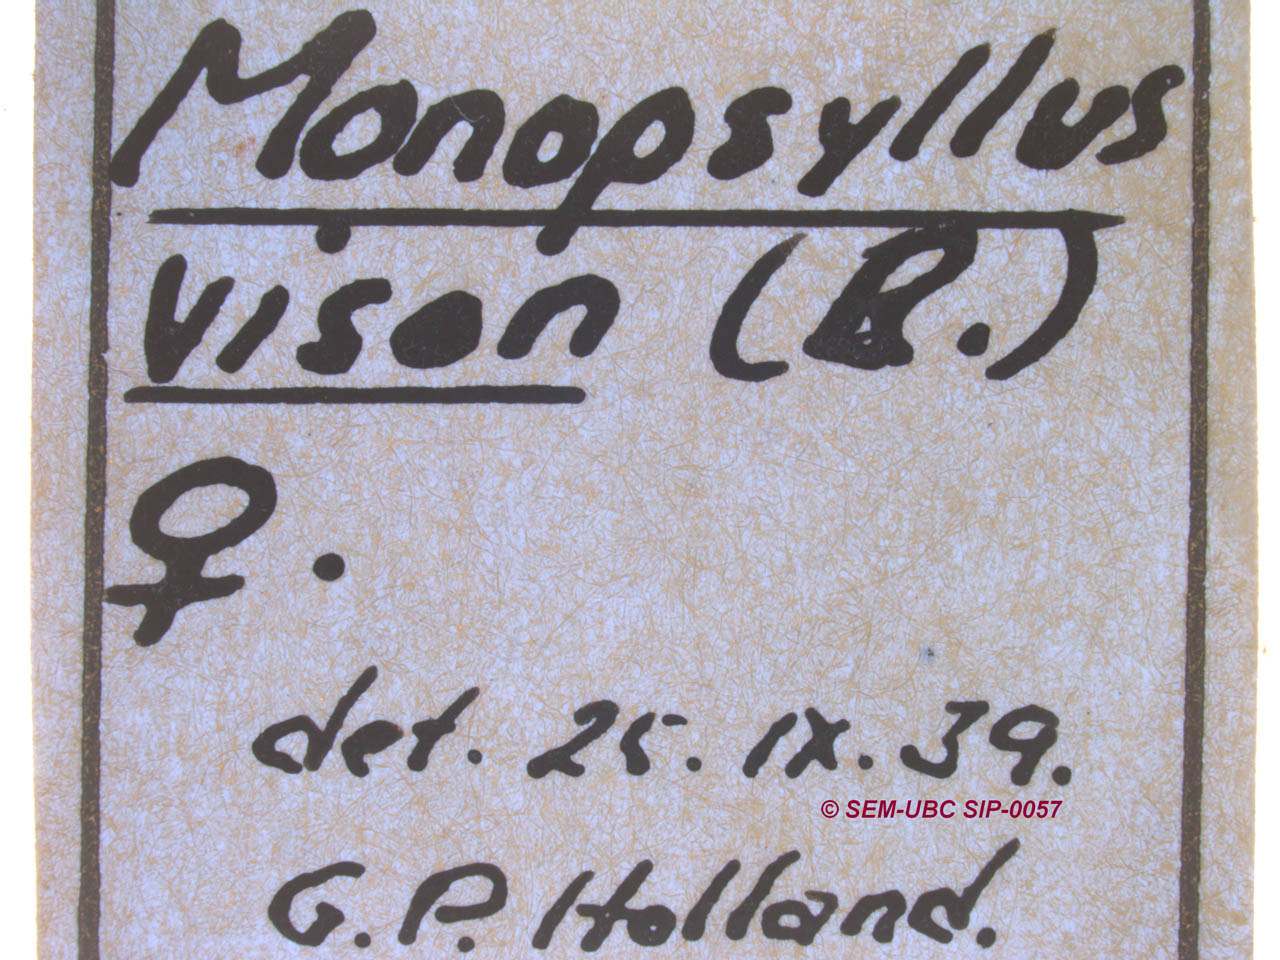 Monopsyllus
vison (B.)
♀.
det. 25. IX. 39.
© SEM-UBC SIP-0057
G.P. Holland.